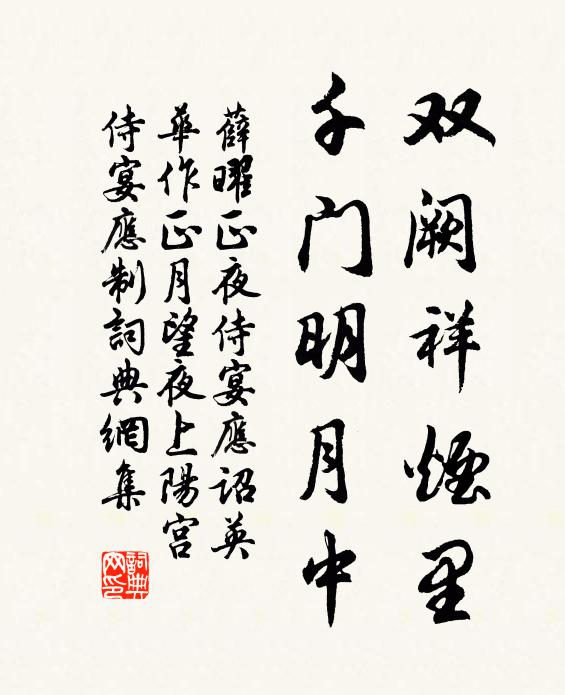 双阙祥煙里
千门明月中
薛曜正夜侍宴應詔英
華作正月望夜上陽宫
侍宴應制詞典網集
詞典
网印